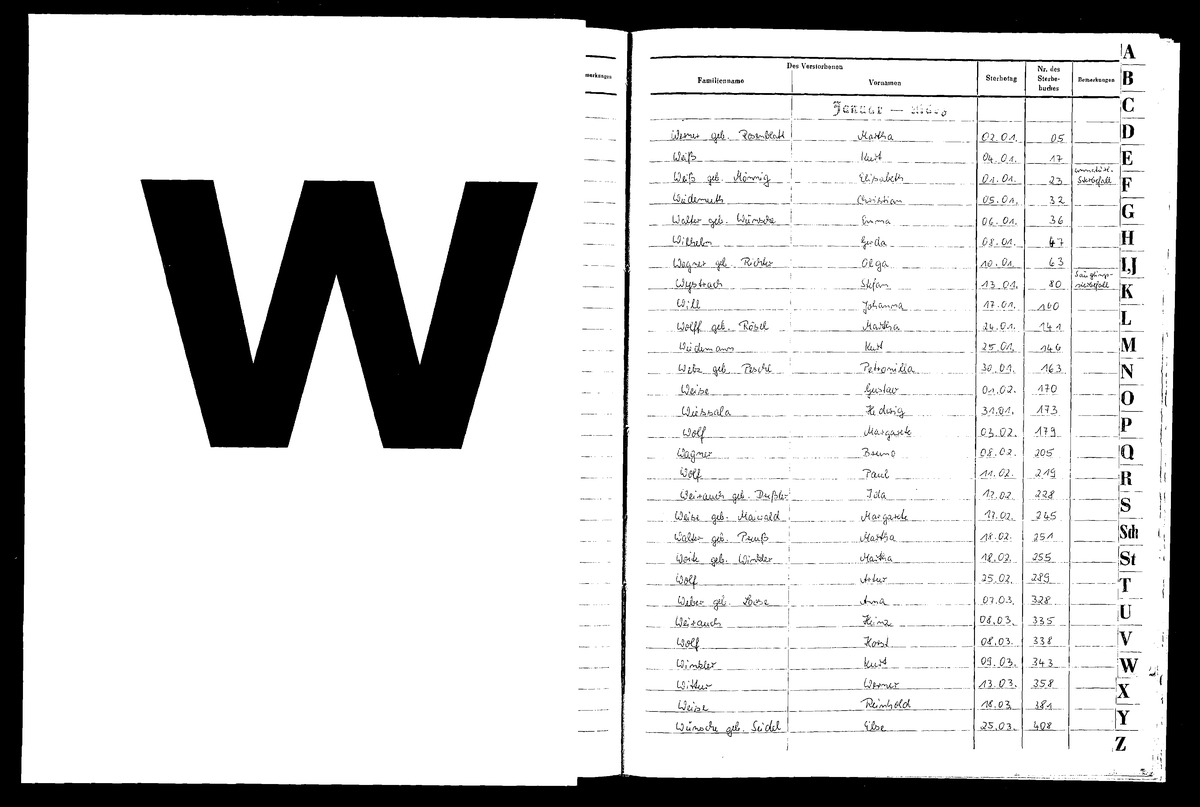 W
merkungen
Des Verstorbenen
Familienname Vornamen Sterbetag Nr. des Sterbe-buches Bemerkungen
Januar —
Werner geb. Rosenblatt Martha 02.01. 05
Weiß Kurt 04.01. 17
Weiß geb. Männig Elisabeth 01.01. 23 Sterbefall
Weidemuth Christian 05.01. 32
Walter geb. Wünsche Emma 06.01. 36
Wilhelm Gerda 08.01. 47
Wagner geb. Richter Olga 10.01. 63
Wystrach Stefan 13.01. 80 Säuglings-sterbefall
Will Johanna 17.01. 100
Wolff geb. Rösel Martha 24.01. 141
Weidemann Kurt 25.01. 146
Webe geb. Peschl Petronilla 30.01. 163
Weise Gustav 01.02. 170
Wiessala Hedwig 31.01. 173
Wolf Margarete 03.02. 179
Wagner Bruno 08.02. 205
Wolf Paul 11.02. 219
Weirauch geb. Ida 12.02. 228
Weise geb. Maiwald Margarete 17.02. 245
Walter geb. Preuß Martha 18.02. 251
geb. Winkler Martha 18.02. 255
Wolf Artur 25.02. 289
Weber geb. Anna 07.03. 328
Weirauch Heinz 08.03. 335
Wolf Horst 08.03. 338
Winkler Kurt 09.03. 343
Wittur Werner 13.03. 358
Weise Reinhold 18.03. 381
Wünsche geb. Seidel Else 25.03. 408
A
B
C
D
E
F
G
H
I,J
K
L
M
N
O
P
Q
R
S
Sch
St
T
U
V
W
X
Y
Z